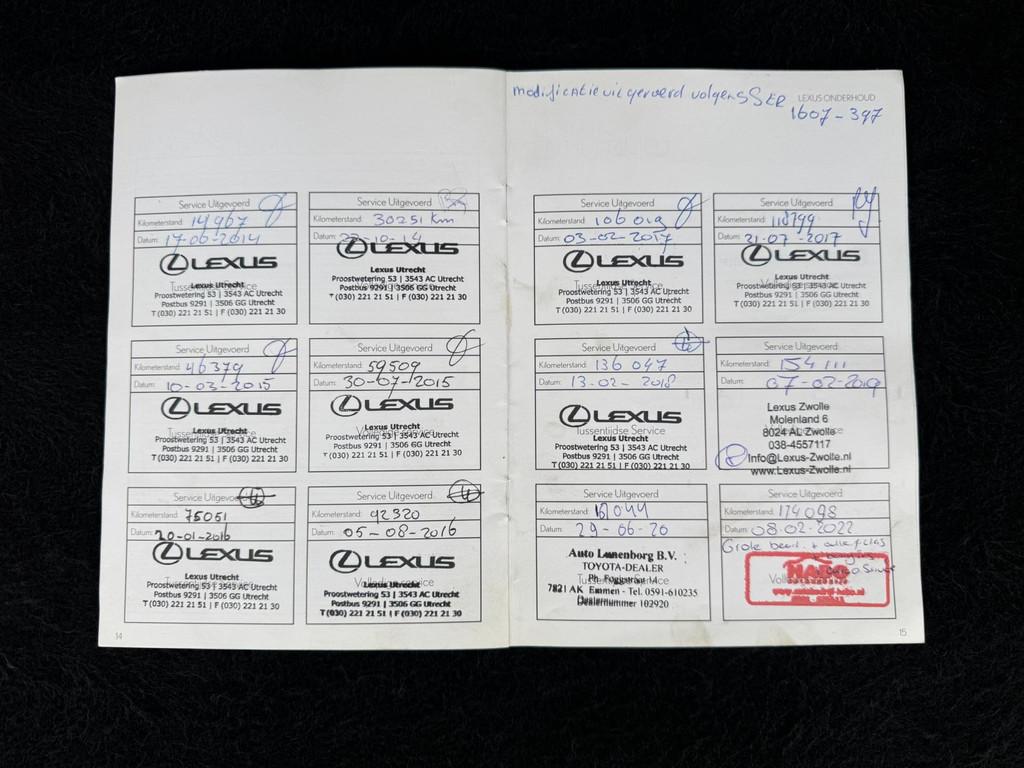 modificatie uitgevoerd volgens SER
LEXUS ONDERHOUD
1607-397
Service Uitgevoerd
Kilometerstand: 14967
Datum: 17-06-2014
LEXUS
Lexus Utrecht
Proostwetering 53 | 3543 AC Utrecht
Postbus 9291 | 3506 GG Utrecht
T (030) 221 21 51 | F (030) 221 21 30
Service Uitgevoerd
Kilometerstand: 30251 km
Datum: 22-10-14
LEXUS
Lexus Utrecht
Proostwetering 53 | 3543 AC Utrecht
Postbus 9291 | 3506 GG Utrecht
T (030) 221 21 51 | F (030) 221 21 30
Service Uitgevoerd
Kilometerstand: 46379
Datum: 10-03-2015
LEXUS
Lexus Utrecht
Proostwetering 53 | 3543 AC Utrecht
Postbus 9291 | 3506 GG Utrecht
T (030) 221 21 51 | F (030) 221 21 30
Service Uitgevoerd
Kilometerstand: 59509
Datum: 30-07-2015
LEXUS
Lexus Utrecht
Proostwetering 53 | 3543 AC Utrecht
Postbus 9291 | 3506 GG Utrecht
T (030) 221 21 51 | F (030) 221 21 30
Service Uitgevoerd
Kilometerstand: 75051
Datum: 20-01-2016
LEXUS
Lexus Utrecht
Proostwetering 53 | 3543 AC Utrecht
Postbus 9291 | 3506 GG Utrecht
T (030) 221 21 51 | F (030) 221 21 30
Service Uitgevoerd
Kilometerstand: 92320
Datum: 05-08-2016
LEXUS
Lexus Utrecht
Proostwetering 53 | 3543 AC Utrecht
Postbus 9291 | 3506 GG Utrecht
T (030) 221 21 51 | F (030) 221 21 30
14
Service Uitgevoerd
Kilometerstand: 106019
Datum: 03-02-2017
LEXUS
Lexus Utrecht
Proostwetering 53 | 3543 AC Utrecht
Postbus 9291 | 3506 GG Utrecht
T (030) 221 21 51 | F (030) 221 21 30
Service Uitgevoerd
Kilometerstand: 118799
Datum: 21-07-2017
LEXUS
Lexus Utrecht
Proostwetering 53 | 3543 AC Utrecht
Postbus 9291 | 3506 GG Utrecht
T (030) 221 21 51 | F (030) 221 21 30
Service Uitgevoerd
Kilometerstand: 136047
Datum: 13-02-2018
LEXUS
Tussentijdse Service
Lexus Utrecht
Proostwetering 53 | 3543 AC Utrecht
Postbus 9291 | 3506 GG Utrecht
T (030) 221 21 51 | F (030) 221 21 30
Service Uitgevoerd
Kilometerstand: 154111
Datum: 07-02-2019
Lexus Zwolle
Molenland 6
8024 AL Zwolle
038-4557117
Info@Lexus-Zwolle.nl
www.Lexus-Zwolle.nl
Service Uitgevoerd
Kilometerstand:
Datum: 29-06-20
Auto Lunenborg B.V.
TOYOTA-DEALER
Ph. Foqistraat 14
7821 AK Emmen - Tel. 0591-610235
Dealernummer 102920
Service Uitgevoerd
Kilometerstand: 174098
Datum: 08-02-2022
Grote beurt
15